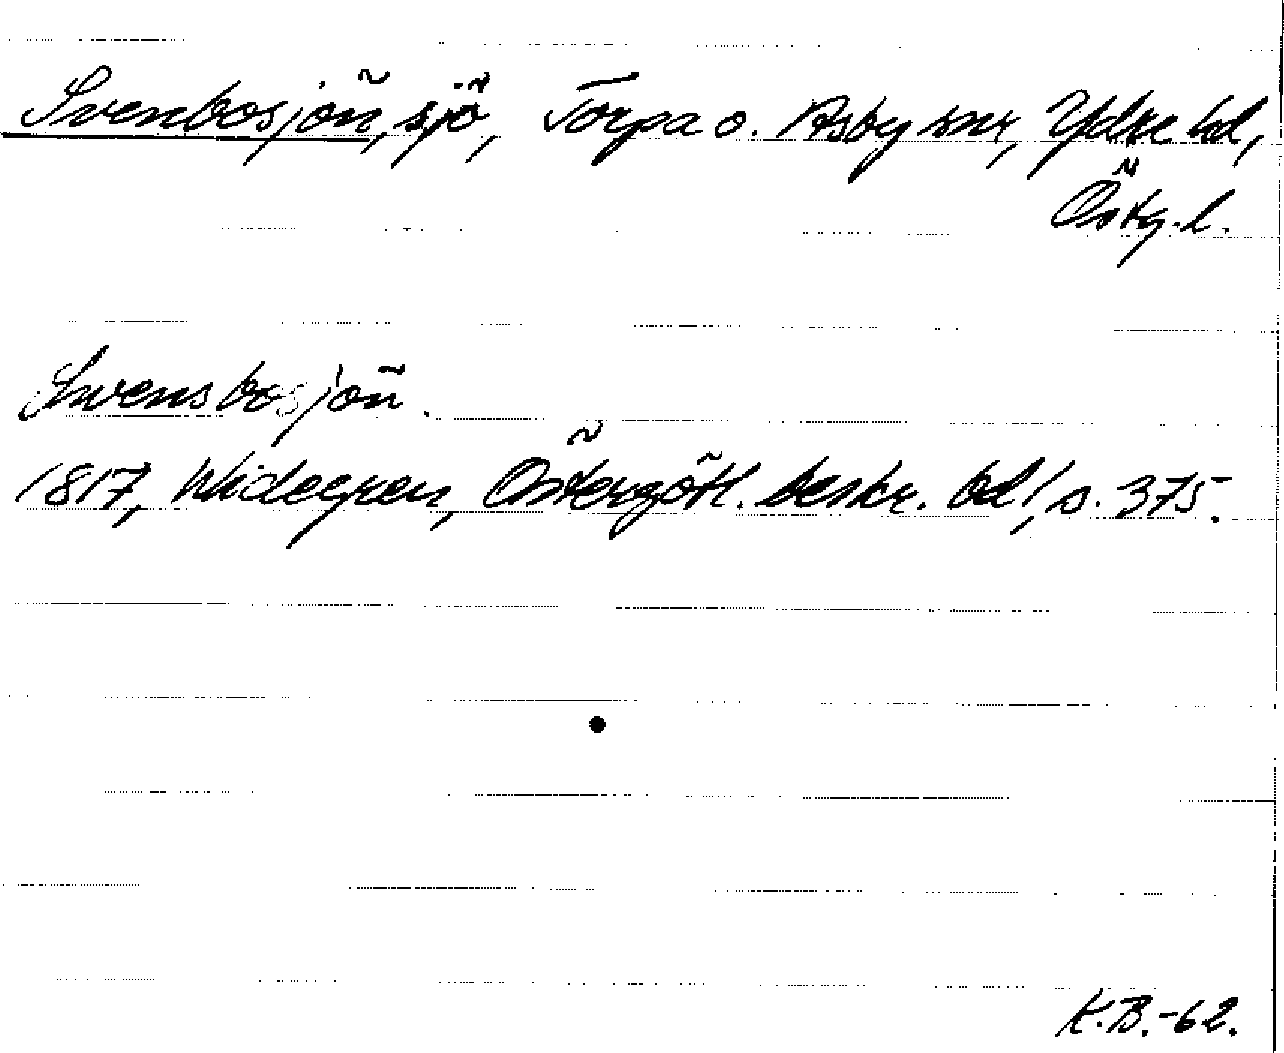 Svenbosjön, sjö, Torpa o. Asby snr, Ydre hd,
Östg. l.
Swensbosjön.
1817, Widegren, Östergötl. beskr. bd 1, s. 375.
K.B.-62.